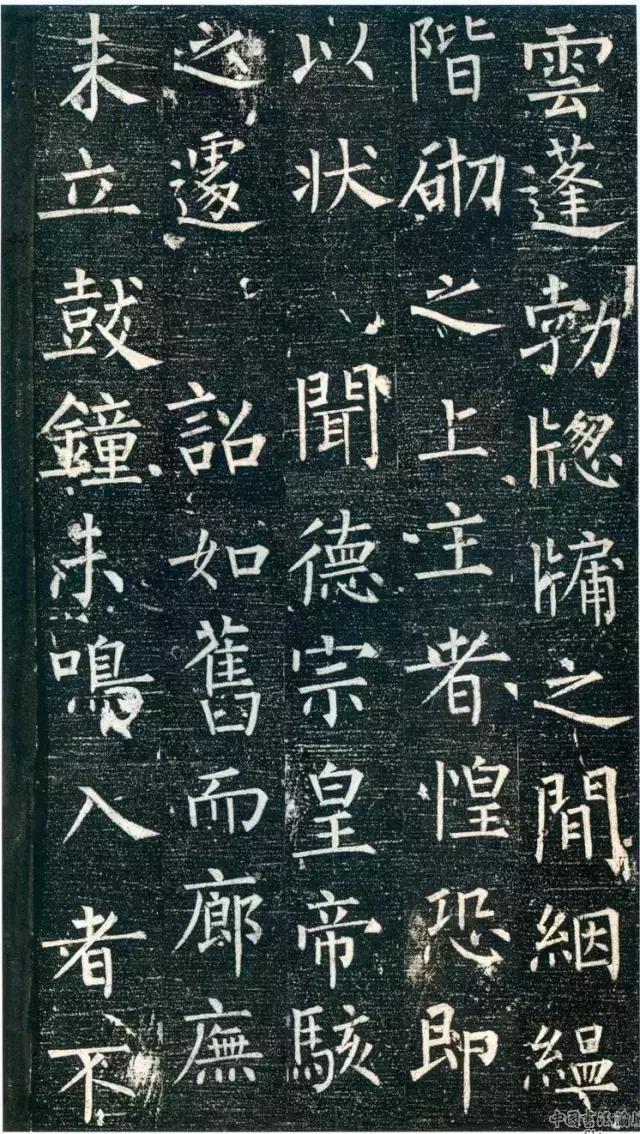 雲蓬勃牕牗之間絪縕
階砌之上主者惶恐即
以状聞德宗皇帝駭
之遽詔如舊而廊廡
未立鼓鐘未鳴入者不
中国书法論壇